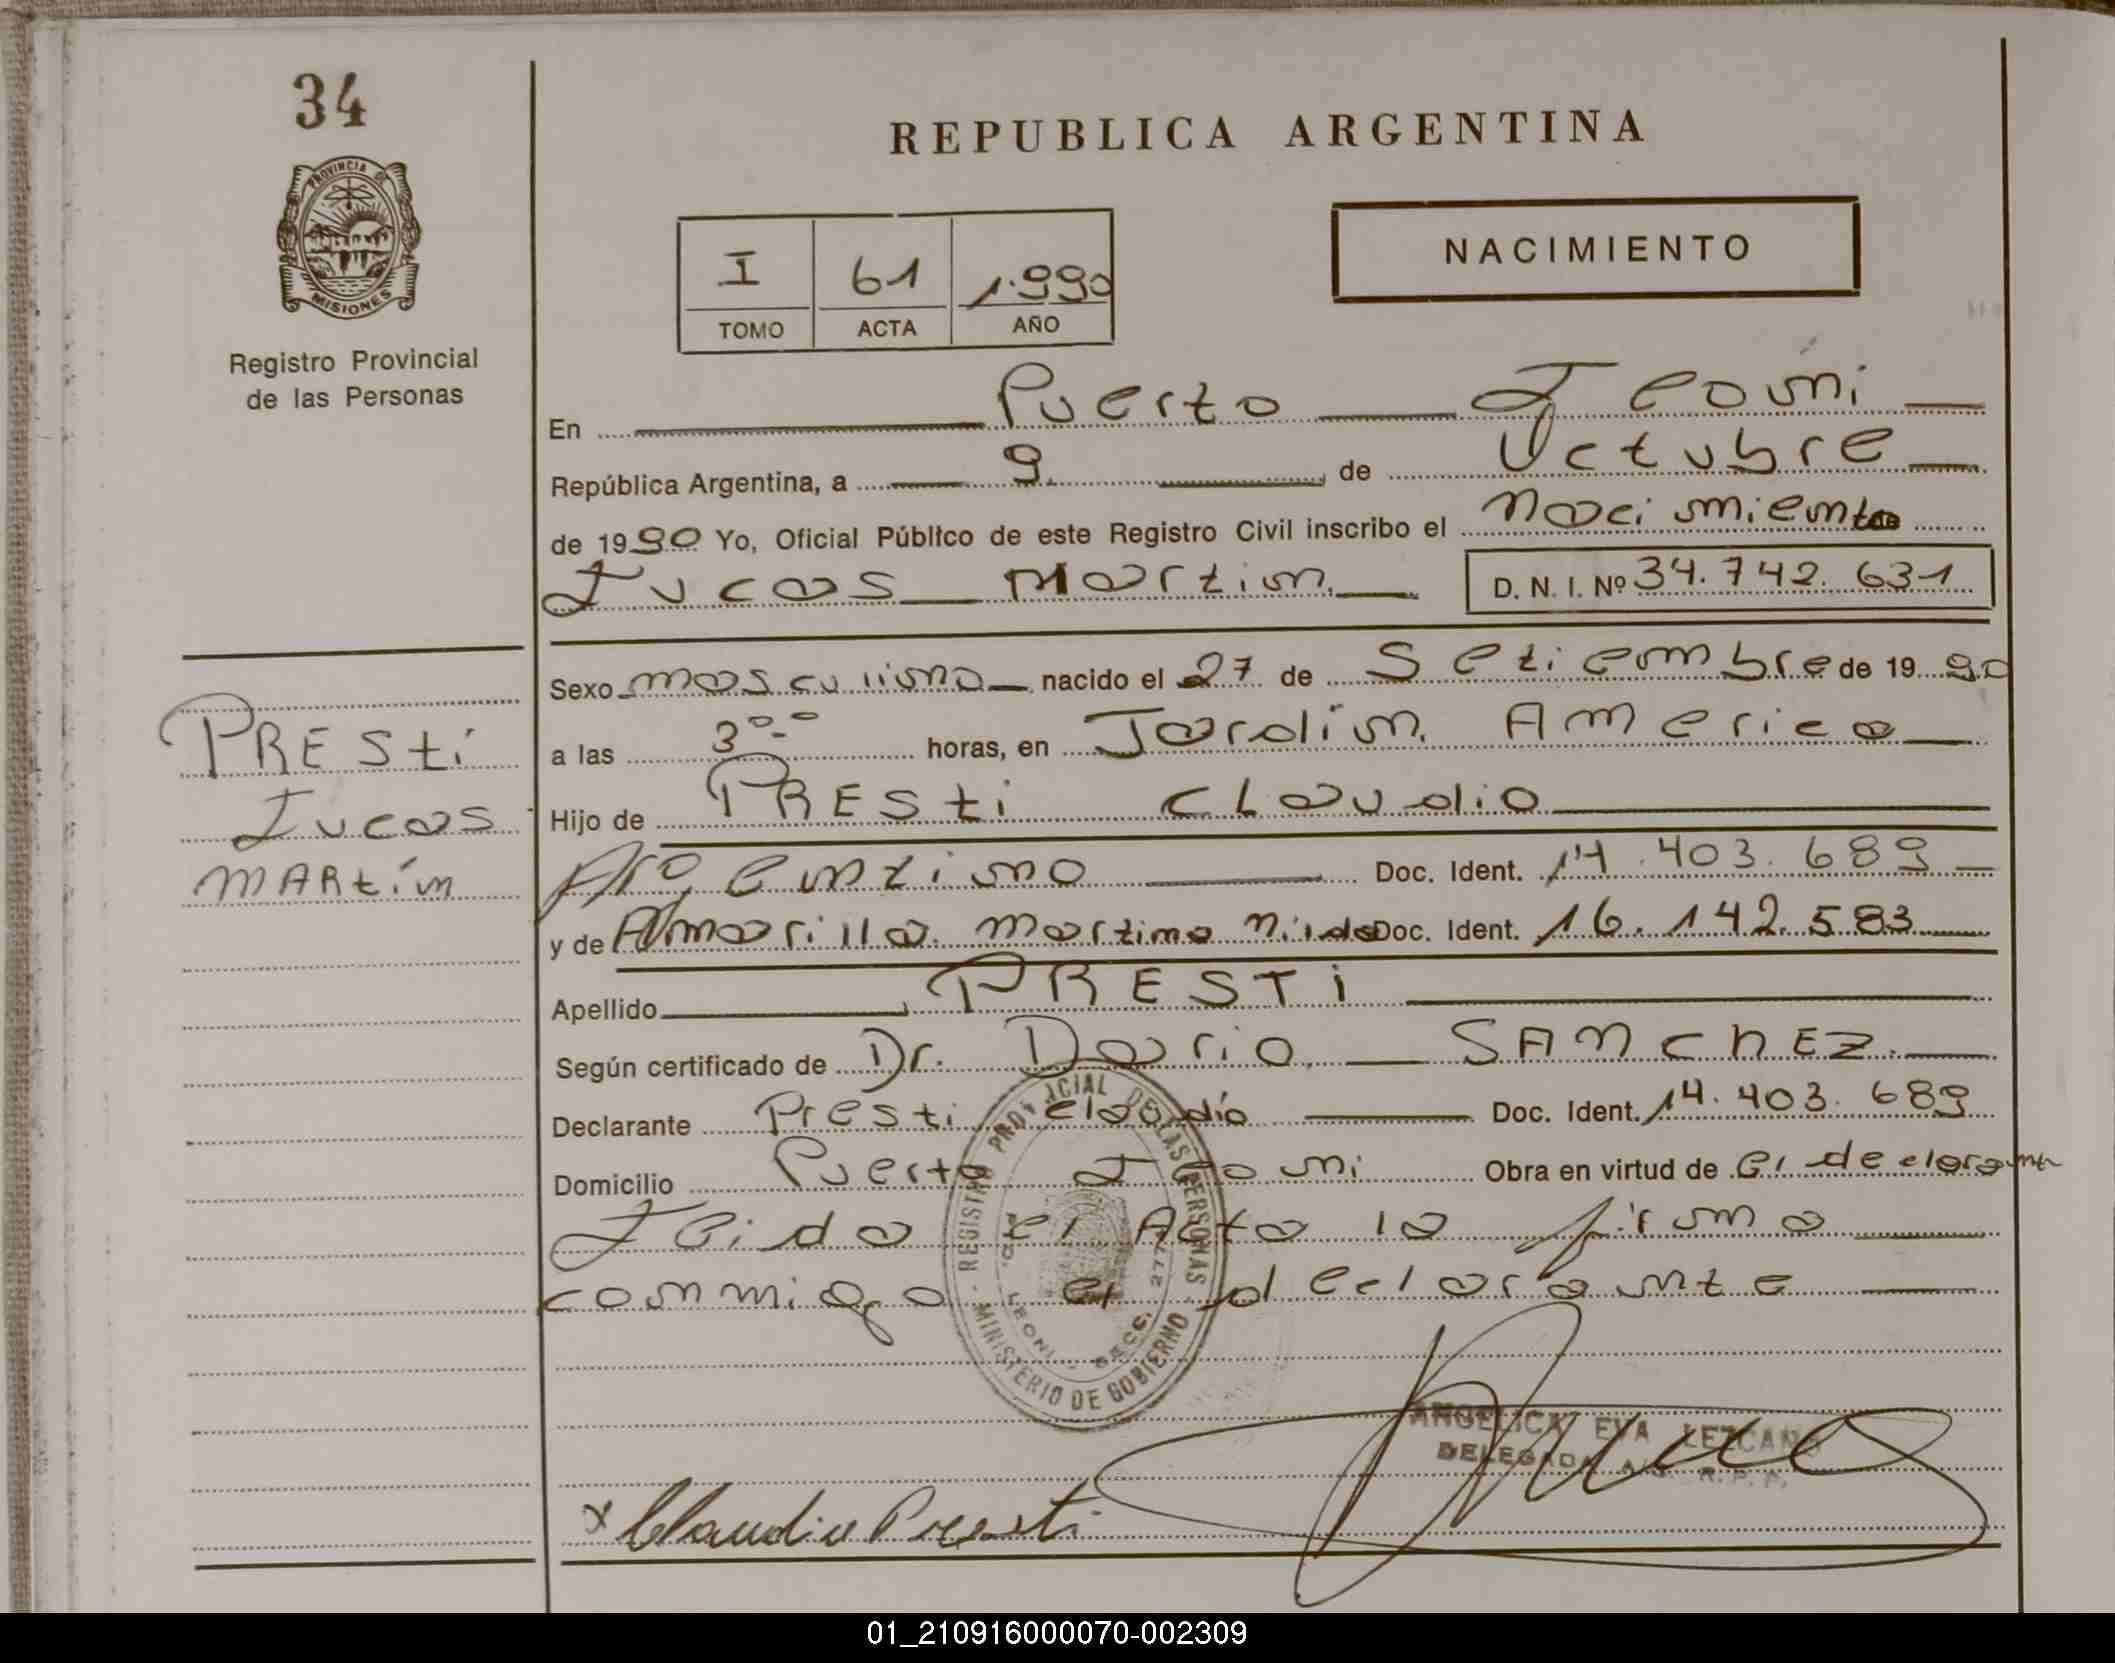 34
REPUBLICA ARGENTINA
PROVINCIA DE
MISIONES
NACIMIENTO
I 61 1.990
TOMO ACTA AÑO
Registro Provincial
de las Personas
En Puerto Leoni
República Argentina, a 9 de Octubre
de 1990 Yo, Oficial Público de este Registro Civil inscribo el Nacimiento
Lucas Martin D. N. I. Nº 34.742.631
Sexo masculino nacido el 27 de Setiembre de 1990
a las 3°° horas, en Jardin America
Hijo de PREsti CLaudio
PREsti
Lucas
MARtín
Argentino Doc. Ident. 14.403.689
y de Amarilla Martina Nilda Doc. Ident. 16.142.583
Apellido PRESTi
Según certificado de Dr. Dario SANchEZ
Declarante Presti Claudio Doc. Ident. 14.403.689
Domicilio Puerto Leoni Obra en virtud de El declarante
Leida el Acta la firma
conmigo el declarante
REGISTRO PROVINCIAL DE LAS PERSONAS
MINISTERIO DE GOBIERNO
PTO. LEONI - SECC. 277
ANGELICA EVA LEZCANO
DELEGADA A/C R.P.P.
x Claudio Presti
01_210916000070-002309